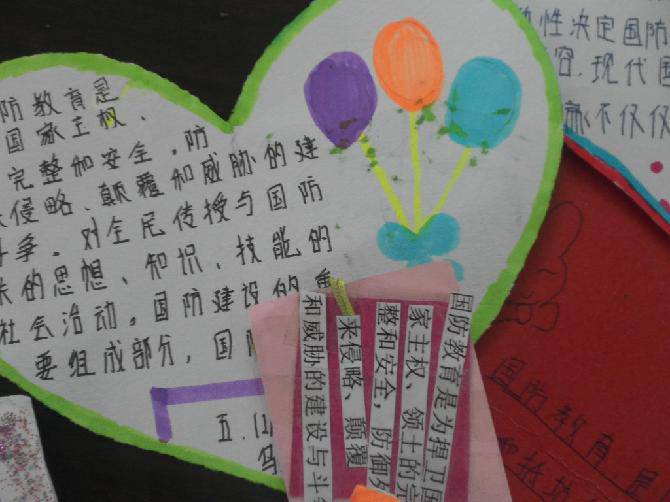 防教育是
国家主权、
完整和安全,防
侵略、颠覆和威胁的建
斗争。对全民传授与国防
的思想、知识、技能的
社会活动。国防建设的重
要组成部分,国防
五.(1)
国防教育是为捍卫国
家主权、领土的完
整和安全,防御外
来侵略、颠覆
和威胁的建设与斗争
性决定国防
容.现代国
不仅仅
国防教育是
和抵抗